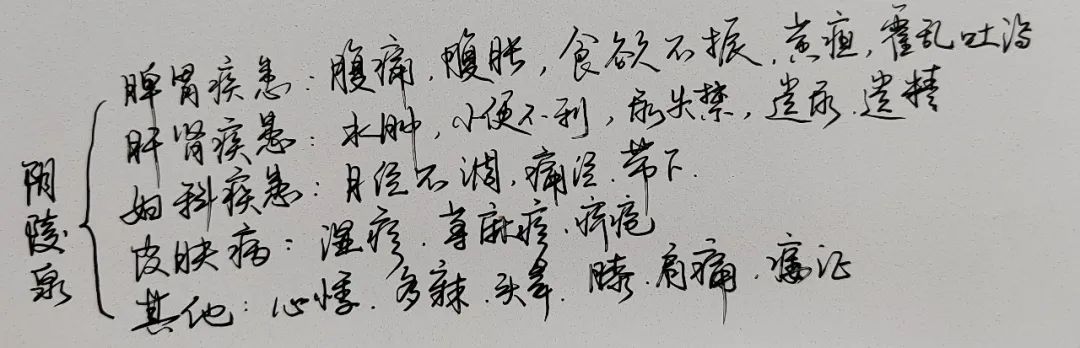 阴陵泉
脾胃疾患：腹痛，腹胀，食欲不振，黄疸，霍乱吐泻
肝肾疾患：水肿，小便不利，尿失禁，遗尿，遗精
妇科疾患：月经不调，痛经，带下．
皮肤病：湿疹．荨麻疹．痤疮
其他：心悸．多寐．头晕．膝．肩痛．痿证